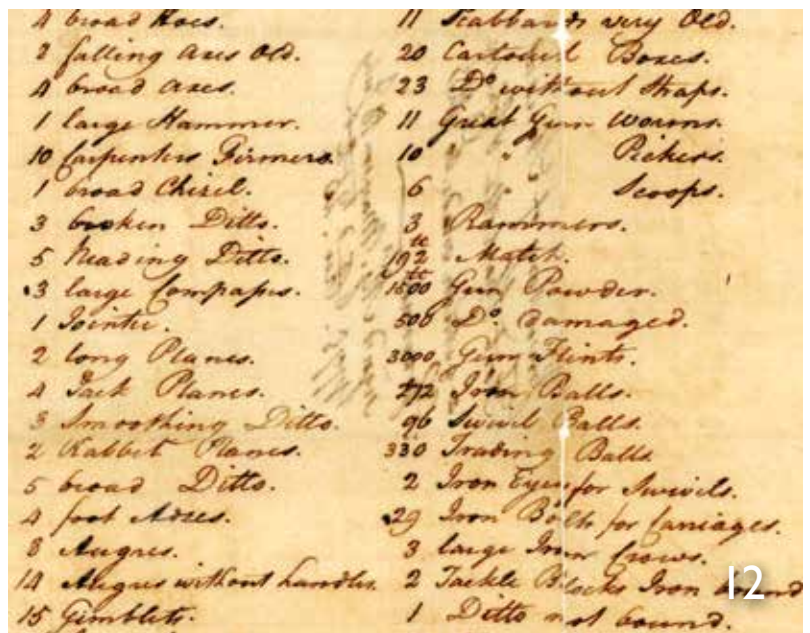 4 broad Hoes.
2 falling axes Old.
4 broad axes.
1 large Hammer.
10 Carpenters Firmers.
1 broad Chizel.
3 broken Ditto.
5 Heading Ditto.
3 large Compasses.
1 Jointer.
2 long Planes.
4 Jack Planes.
3 Smoothing Ditto.
2 Rabbet Planes.
5 broad Ditto.
4 foot Adzes.
8 Augres.
14 Augres without handles.
15 Gimblets.
11 Scabbards very Old.
20 Cartouch Boxes.
23 Do without Straps.
11 Great Gun Worms.
10 " " Pickers.
6 " Scoops.
3 Rammers.
192 Match.
1500 Gun Powder.
500 Do. damaged.
3000 Gun Flints.
272 Iron Balls.
96 Swivil Balls.
330 Trading Balls
2 Iron Eyes for Swivils.
29 Iron Bolts for Carriages.
3 large Iron Crows.
2 Tackle Blocks Iron bound
1 Ditto not bound.
12